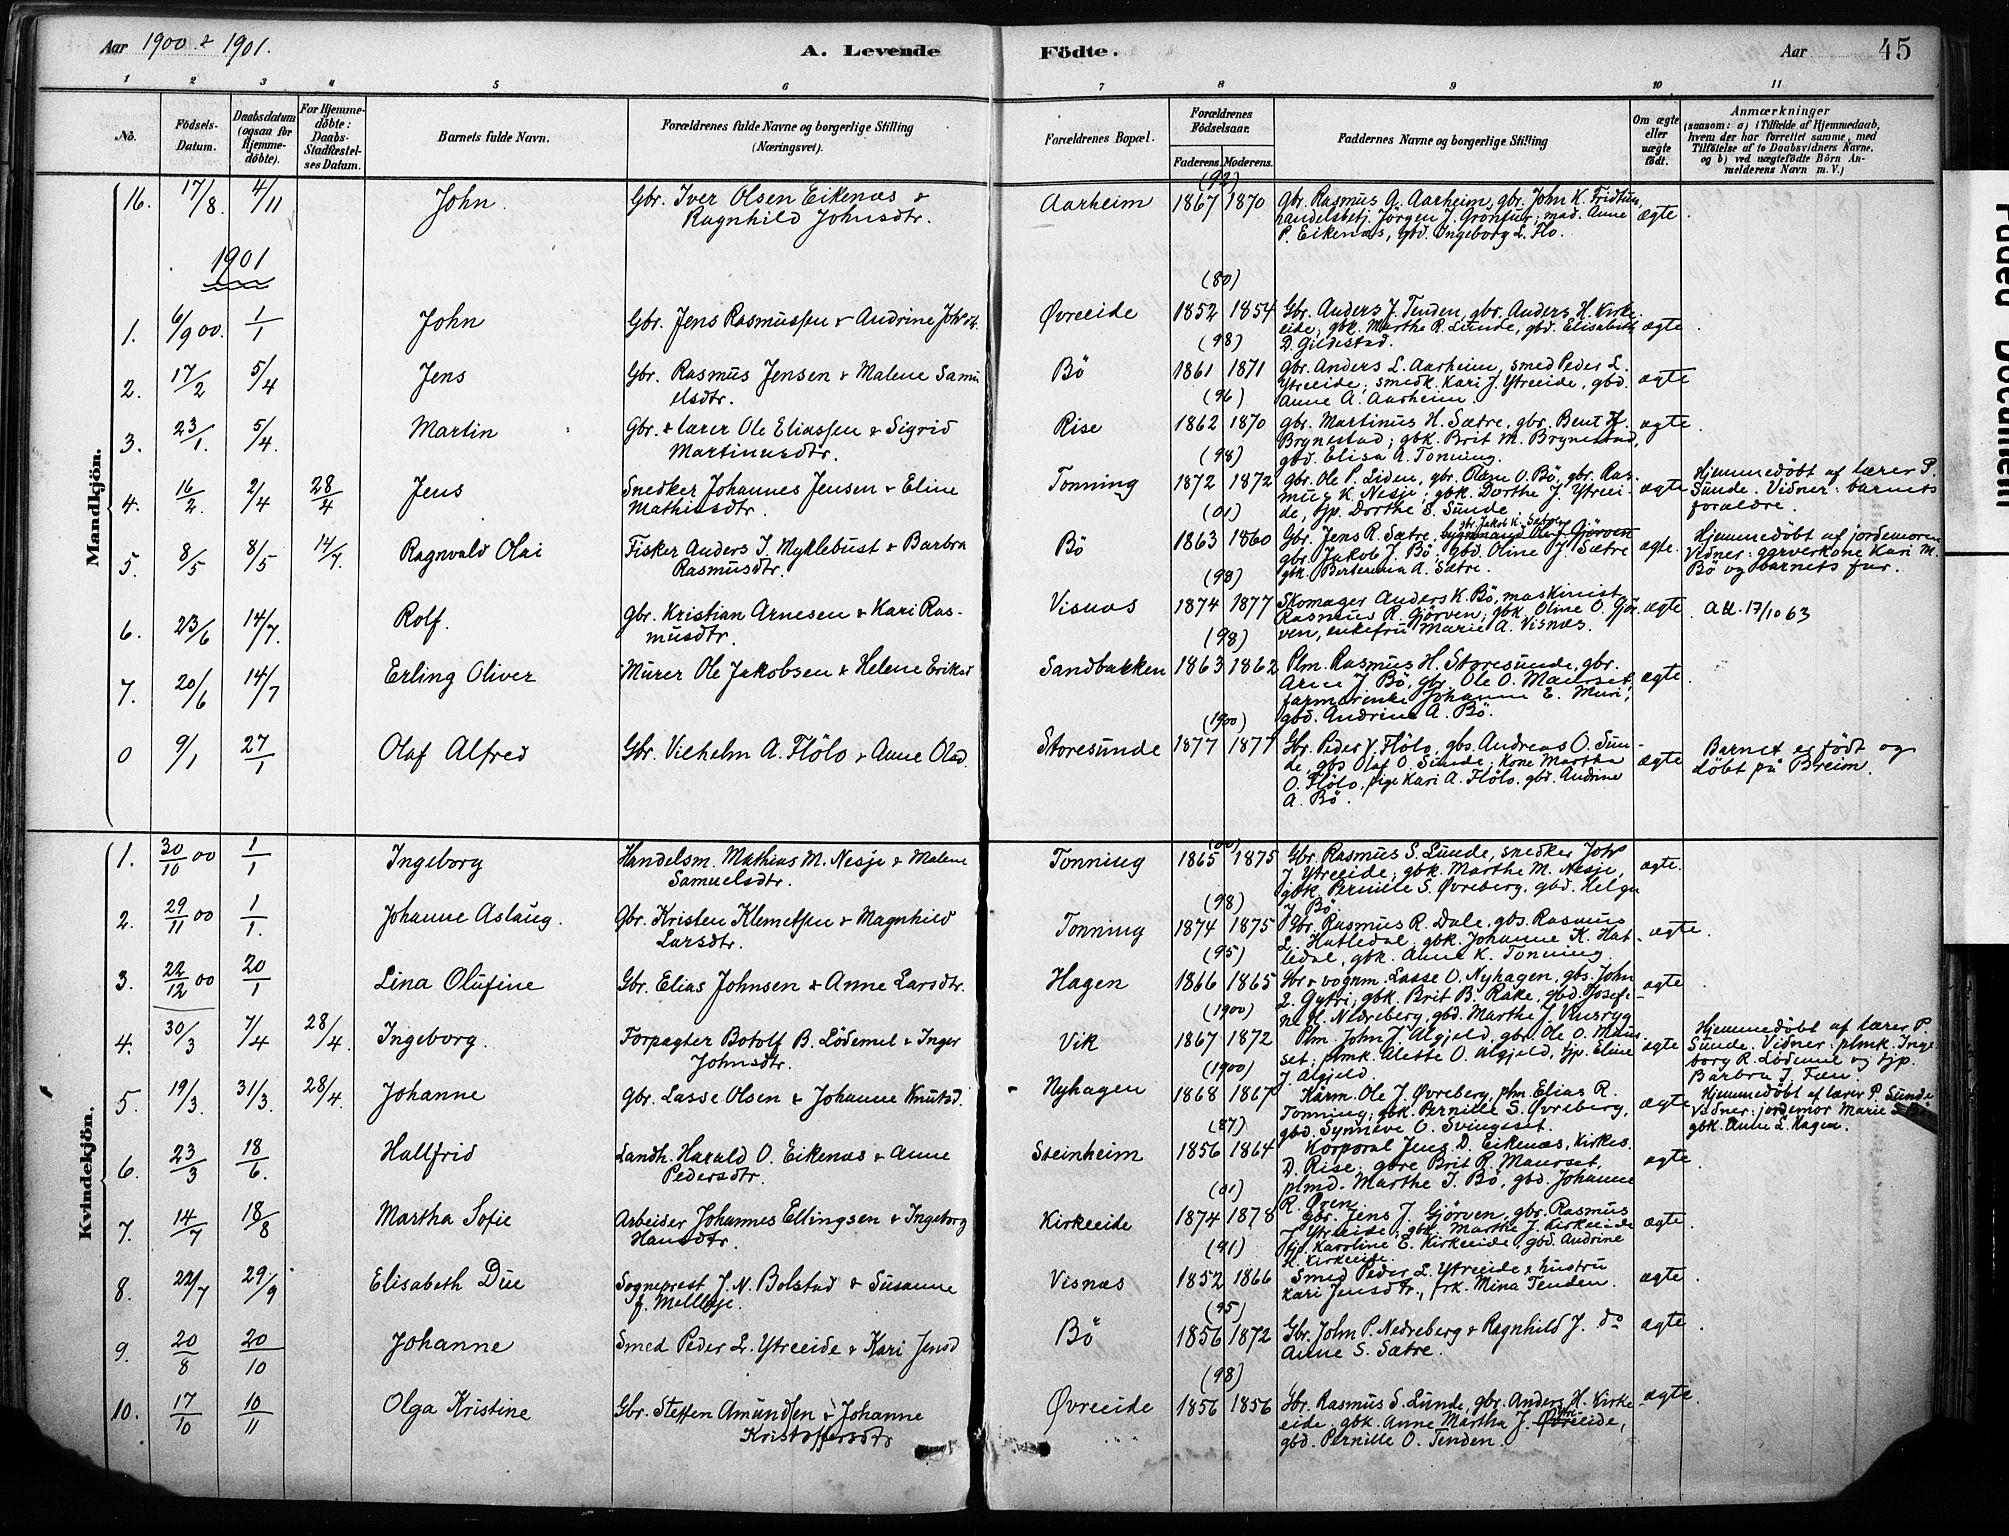 Aar 1900 & 1901.
A. Levende Födte.
Aar 45
1 2 3 4 5 6 7 8 9 10 11
No.
Födsels-Datum.
Daabsdatum (ogsaa for Hjemmedöbte).
For Hjemmedöbte: Daabs-Stadfæstelses Datum.
Barnets fulde Navn.
Forældrenes fulde Navne og borgerlige Stilling (Næringsvei).
Forældrenes Bopæl.
Forældrenes Födselsaar.
Faderens. Moderens.
Faddernes Navne og borgerlige Stilling
Om ægte eller uægte födt.
Anmærkninger (saasom: a) i Tilfælde af Hjemmedaab, hvem der har forrettet samme, med Tilföielse af to Daabsvidners Navne, og b) ved uægtefödte Börn Anmelderens Navn m. V.)
Mandkjön.
16. 17/8 4/11 John. Gbr. Iver Olsen Eikenæs & Ragnhild Johnsdtr. Aarheim (92) 1867 1870 Gbr. Rasmus A. Aarheim, gbr. John K. Fridtun, handelsbetj. Jörgen J. Grönfur; mad. Anne P. Eikenæs, gbd. Ingeborg L. Flo. ægte.
1901
1. 6/9 00. 1/1 John Gbr. Jens Rasmussen & Andrine Johsdtr. Øvreeide (80) 1852 1854 Gbr. Anders J. Tenden, gbr. Anders H. Kirkeeide, gbk. Marthe R. Lunde, gbd. Elisabeth D. Gildestad. ægte.
2. 17/2 5/4 Jens Gbr. Rasmus Jensen & Malene Samuelsdtr. Bö (98) 1861 1871 Gbr. Anders L. Aarheim, smed Peder L. Ytreeide; smedk. Kari J. Ytreeide, gbd. Anne A. Aarheim. ægte
3. 23/1. 5/4. Martin Gbr. & lærer Ole Eliassen & Sigrid Martinusdtr. Rise (96) 1862 1870 gbr. Martinus H. Sætre, gbr. Bent H. Brynestad; gbk. Brit M. Brynestad, gbd. Elisa A. Tonning. ægte.
4. 16/2. 2/4 28/4 Jens Snedker Johannes Jensen & Eline Mathiasdtr. Tonning (98) 1872 1872 gbr. Ole P. Liden, gbr. Olane O. Bö, gbr. Rasmus K. Nesje; gbk. Dorthe J. Ytreeide, tjp. Dorthe S. Sunde ægte Hjemmedöbt af lærer P. Sunde. Vidner: barnets forældre.
5. 8/5 8/5 14/7. Ragnvald Olai Fisker Anders I. Myklebust & Barbra Rasmusdtr. Bö (01) 1863 1860 Gbr. Jens R. Sætre, gbr. Jakob K. Sætre gbr. Jakob J. Bö, gbd. Oline J. Sætre gbk. Bertemina A. Sætre. ægte. Hjemmedöbt af jordemoren Vidner: garverkone Kari M. Bö og barnets far.
6. 23/6 14/7. Rolf. Gbr. Kristian Arnesen & Kari Rasmusdtr. Visnæs (98) 1874 1877 Skomager Anders K. Bö, maskinist Rasmus R. Gjörven; gbk. Oline O. Gjörven, enkefru Marie A. Visnæs. ægte. Att. 17/10 63
7. 20/6 14/7 Erling Oliver Murer Ole Jakobsen & Helene Eriksd Sandbakken (98) 1863 1862 Plm. Rasmus H. Storesunde, gbr. Arne J. Bö, gbr. Ole O. Maurset, Johanne E. Muri, gbd. Andrine A. Bö. ægte.
0 9/1 27/1 Olaf Alfred Gbr. Vilhelm A. Flölo & Anne Olsd. Storesunde (1900) 1877 1877 Gbr. Peder V. Flölo, gbs. Andreas O. Sunde, gbs Olaf O. Sunde; kone Martha O. Flölo, pige Kari A. Flölo, gbd. Andrine A. Bö. ægte Barnet er födt og döbt på Breim.
Kvindekjön.
1. 30/10 00 1/1 Ingeborg Handelsm. Mathias M. Nesje & Malene Samuelsdtr. Tonning (00) 1865 1875 Gbr. Rasmus S. Lunde, snedker Johs J Ytreeide; gbk. Marthe M. Nesje, gbk. Pernille S. Øvreberg, gbd. Helga J Bö. ægte.
2. 29/11 00 1/1. Johanne Aslaug. Gbr. Kristen Klemetsen & Magnhild Larsdtr. Tonning (98) 1874 1875 Gbr. Rasmus R. Dale, gbs. Rasmus L. Hatledal, gbk. Johanne K. Hatledal, gbk. Anne K. Tonning. ægte.
3. 22/12 00 20/1 Lina Olufine Gbr. Elias Johnsen & Anne Larsdtr. Hagen (95) 1866 1865 Gbr & vognm. Lasse O. Nyhagen, gbs. John L. Gytri, gbk. Brit B. Rake, gbd. Josefine H. Nedreberg, gbd. Marthe J. Vasryg ægte
4. 30/3 7/4 28/4. Ingeborg. Forpagter Botolf B. Lödemel & Inger Johnsdtr. Vik (1900) 1867 1872 Plm. John J. Algjeld, gbr. Ole O. Maurset; plmk. Alette O. Algjeld, tjp. Eline J. Algjeld. ægte Hjemmedöbt af lærer P. Sunde. Vidner: plmk. Ingeborg R. Lödemel og tjp. Barbra J. Fæn.
5. 19/3. 31/3. 28/4. Johanne Gbr. Lasse Olsen & Johanne Knutsd. Nyhagen (1900) 1868 1867 Kårm. Ole J. Øvreberg, plm Elias R. Tonning; gbk. Pernille S. Øvreberg, gbd. Synneve O. Svingset. ægte Hjemmedöbt af lærer P. Sunde Vidner: jordemor Marie S Bö gbk. Anne L. Hagen.
6. 23/3 18/6. Hallfrid Landh. Harald O. Eikenæs & Anne Pedersdtr. Steinheim (87) 1856 1864 Korporal Jens D. Eikenæs, kirkes. D. Rise; gbre Brit R. Maurset, plmd. Marthe I. Bö, gbd. Johanne R. Øren ægte.
7. 14/7 18/8 Martha Sofie Arbeider Johannes Ellingsen & Ingeborg Hansdtr. Kirkeeide (01) 1874 1878 Gbr. Jens J. Gjörven, gbr. Rasmus J Ytreeide; gbk. Marthe J. Kirkeeide tjp. Karoline E. Kirkeeide, gbd Andrine H. Kirkeeide. ægte.
8. 22/7 29/9 Elisabeth Due Sogneprest J. N. Bolstad & Susanne f. Mellbye. Visnæs (91) 1852 1866 Smed Peder L. Ytreeide & hustru Kari Jensdtr., frk. Mina Tenden. ægte.
9. 20/8 20/10 Johanne Smed Peder L. Ytreeide & Kari Jensd Bö (95) 1856 1872 Gbr. John P. Nedreberg & Ragnhild J. do Anne S. Sætre. ægte.
10. 17/10 10/11 Olga Kristine Gbr. Steffen Amundsen & Johanne Kristoffersdtr Øvreeide (98) 1856 1856 Gbr. Rasmus S. Lunde, gbr. Anders H. Kirkeeide, gbk. Anne Martha J. Ytreeide, gbd. Pernille O. Tenden. ægte.
Faded Document